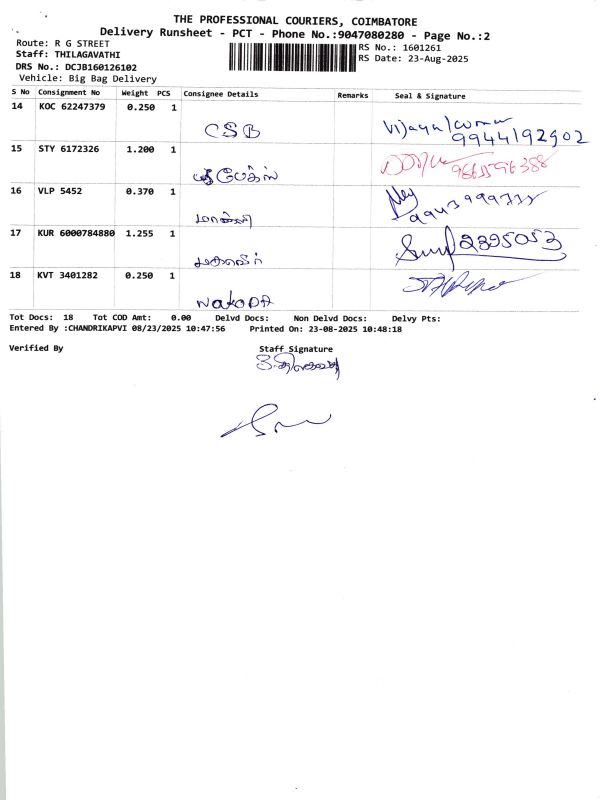 THE PROFESSIONAL COURIERS, COIMBATORE
Delivery Runsheet - PCT - Phone No.:9047080280 - Page No.:2
Route: R G STREET
RS No.: 1601261
Staff: THILAGAVATHI
RS Date: 23-Aug-2025
DRS No.: DCJB160126102
Vehicle: Big Bag Delivery
S No Consignment No Weight PCS Consignee Details Remarks Seal & Signature
14 KOC 62247379 0.250 1
CSB
Vijayakumar
9944192902
15 STY 6172326 1.200 1
16 VLP 5452 0.370 1
17 KUR 6000784880 1.255 1
2395053
18 KVT 3401282 0.250 1
NakODA
Tot Docs: 18 Tot COD Amt: 0.00 Delvd Docs: Non Delvd Docs: Delvy Pts:
Entered By :CHANDRIKAPVI 08/23/2025 10:47:56 Printed On: 23-08-2025 10:48:18
Verified By Staff Signature